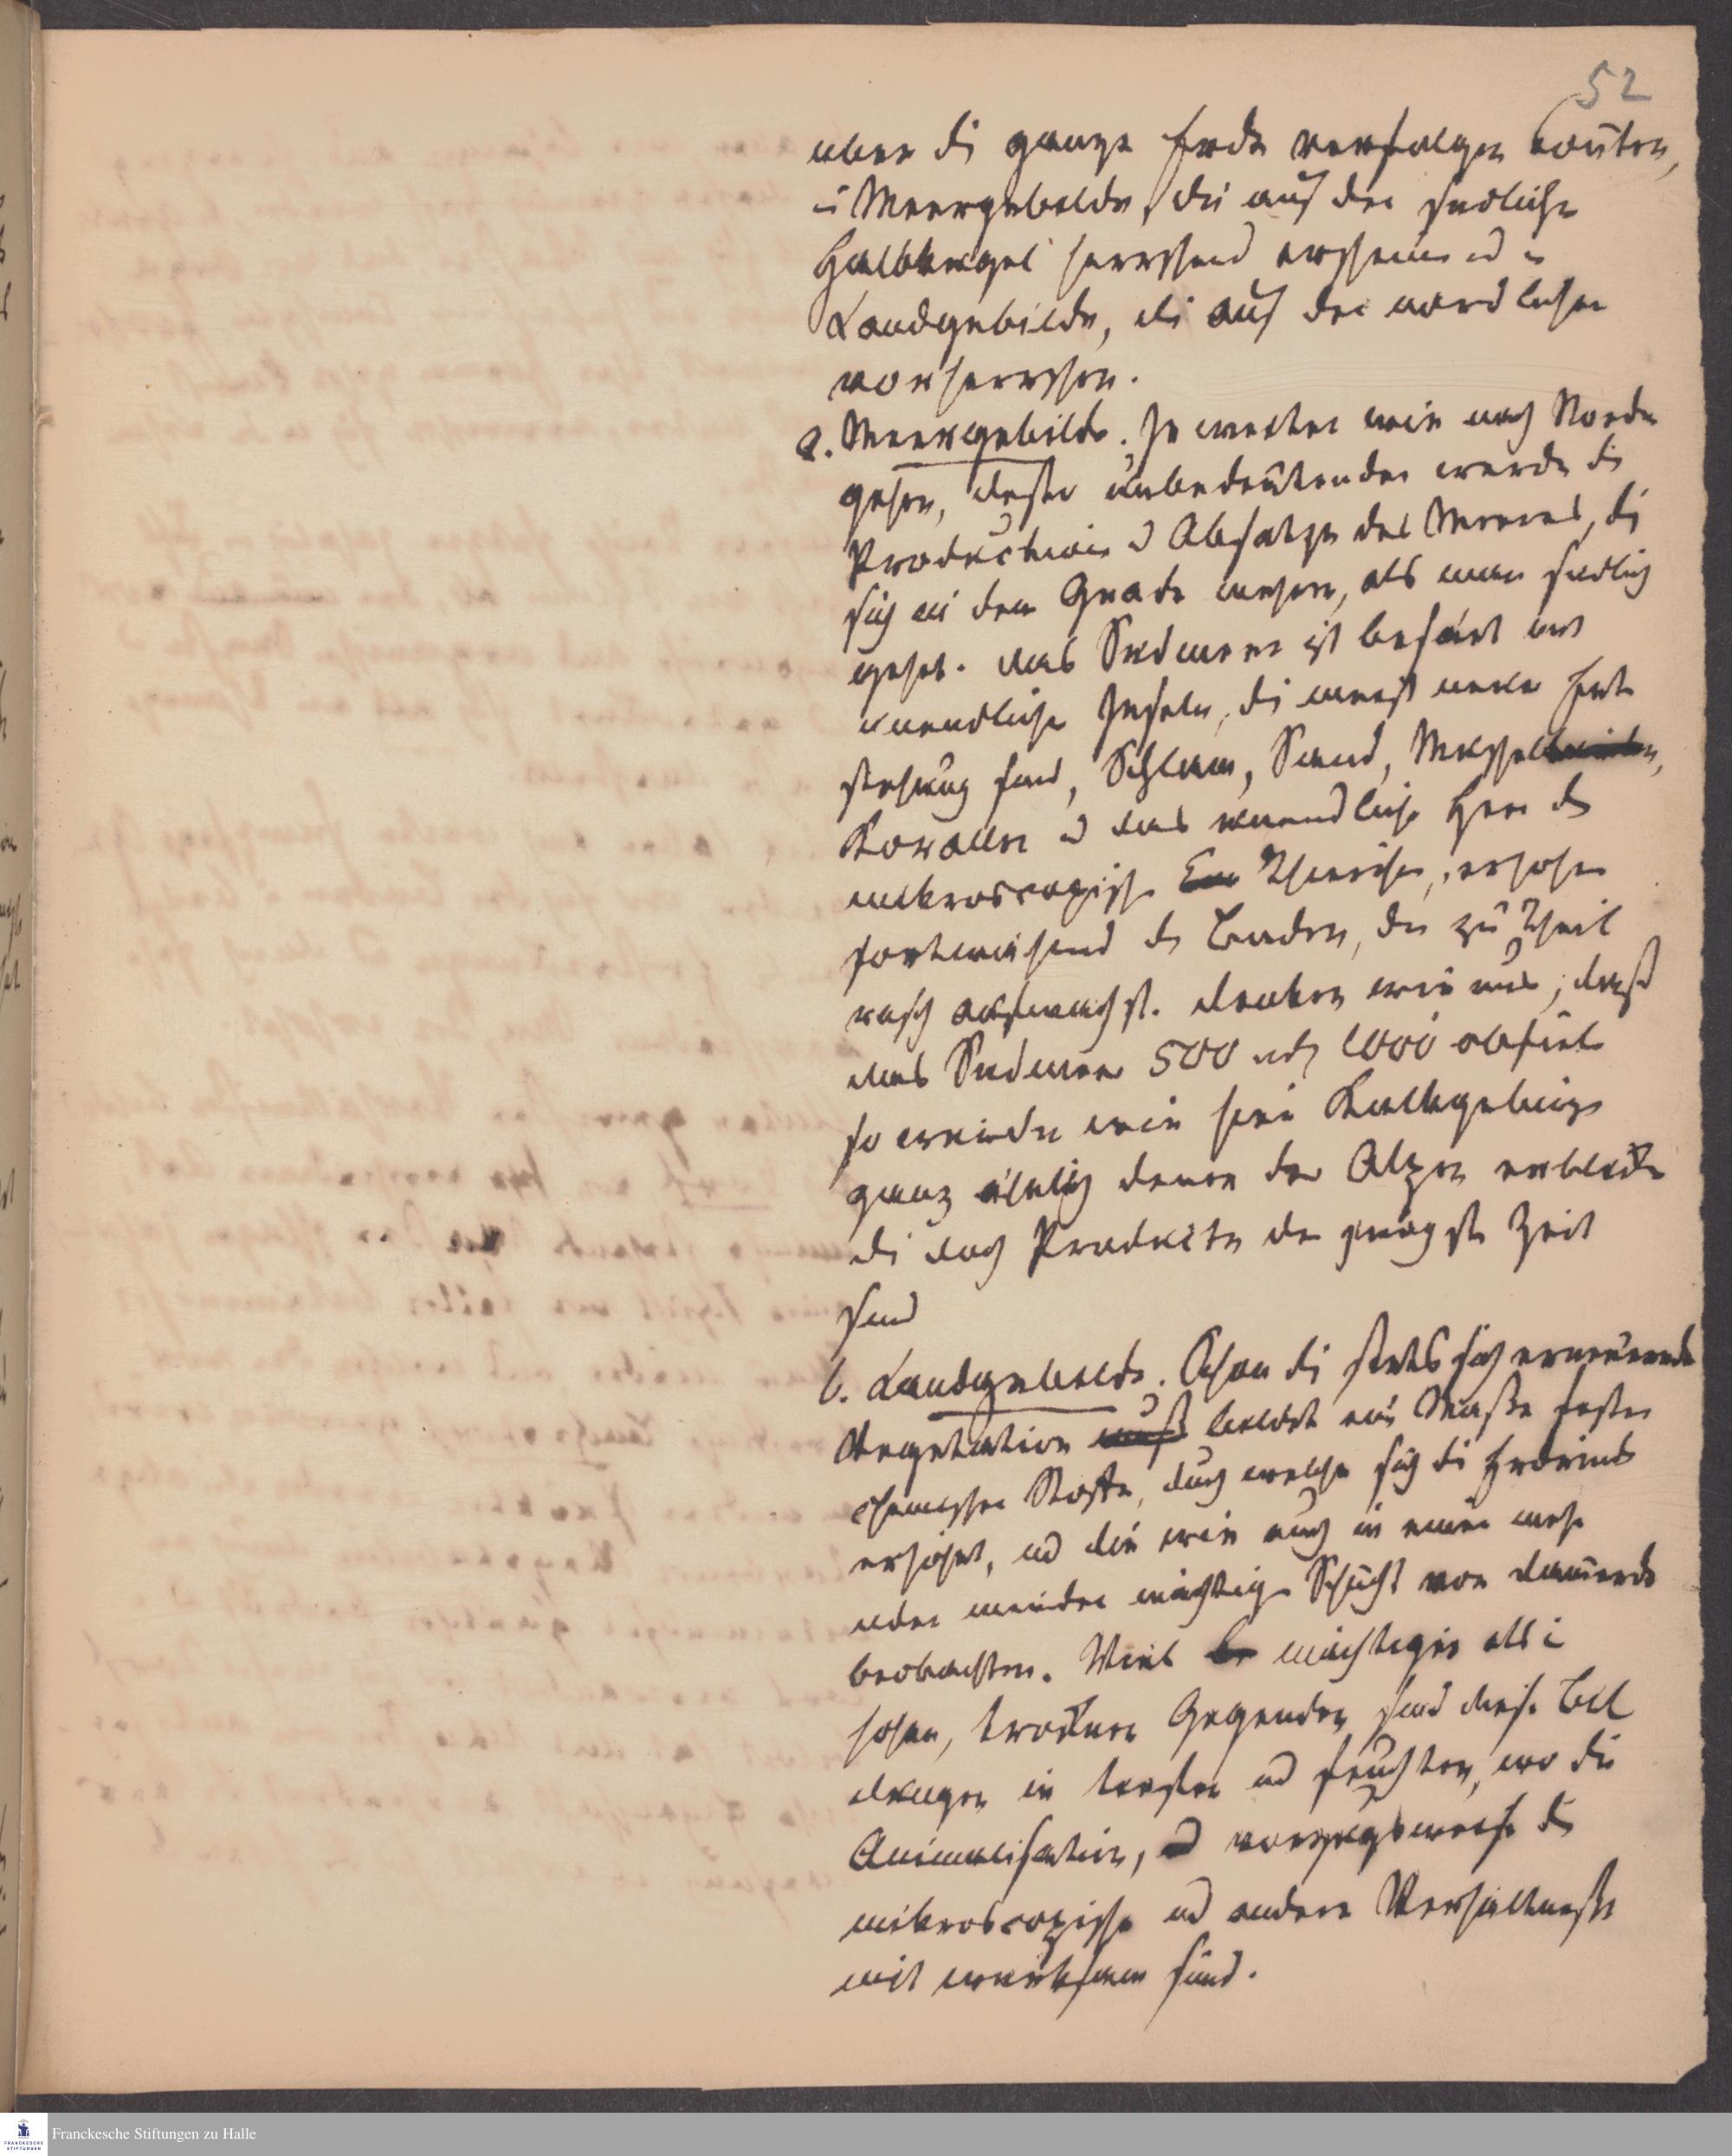 52
über die ganze Erde verfolgen könten,
in Meergebilde, die auf der südlichen
Halbkugel herrschend erscheinen und in
Landgebilde, die auf der nördlichen
vorherrschen.
a. Meergebilde. Je weiter wir nach Norden
gehen, desto unbedeutender werden die
Productionen u Absätze des Meeres, die
sich in dem Grade mehren, als man südlich
geht. das Südmeer ist besäet mit
unendlichen Inseln, die meist neuer Ent
stehung sind, Schlamm, Sand, Muschel
Korallen u das unendliche Heer der
mikroscopischen Thierchen, erhöhen
fortwährend den Boden, der zum Theil
rasch aufwächst. denken wir uns, daß
das Südmeer 500 oder 1000 abfiele
so würden wir hier Kalkgebirge
ganz ähnlich denen der Alpen erblicken
die doch Producte der jüngsten Zeit
sind
b. Landgebilde. Schon die stets sich erneuernde
Vegetation bildet eine Masse fester
chemischer Stoffe, durch welche sich die Erdrinde
erhöhet, und die wir auch in einer mehr
oder minder mächtigen Schicht von Dammerde
beobachten. Viel mächtiger als in
hohen, trocknen Gegenden sind diese Bil
dungen in tiefen und feuchten, wo die
Animalisation, und vorzugsweise die
mikroscopische und andere Verhältnisse
mit wirksam sind.
Franckesche Stiftungen zu Halle